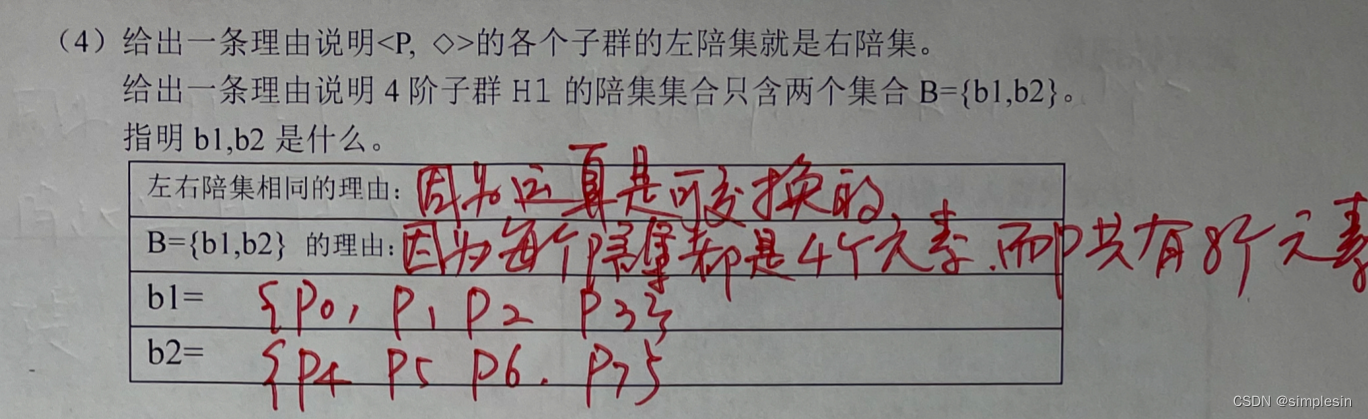 (4)给出一条理由说明<P, ◇>的各个子群的左陪集就是右陪集。
给出一条理由说明4阶子群H1的陪集集合只含两个集合B={b1,b2}。
指明b1,b2是什么。
左右陪集相同的理由:因为运算是可交换的
B={b1,b2} 的理由:因为每个陪集都是4个元素.而P共有8个元素
b1= {P0, P1 P2 P3}
b2= {P4 P5 P6. P7}
CSDN @simplesin